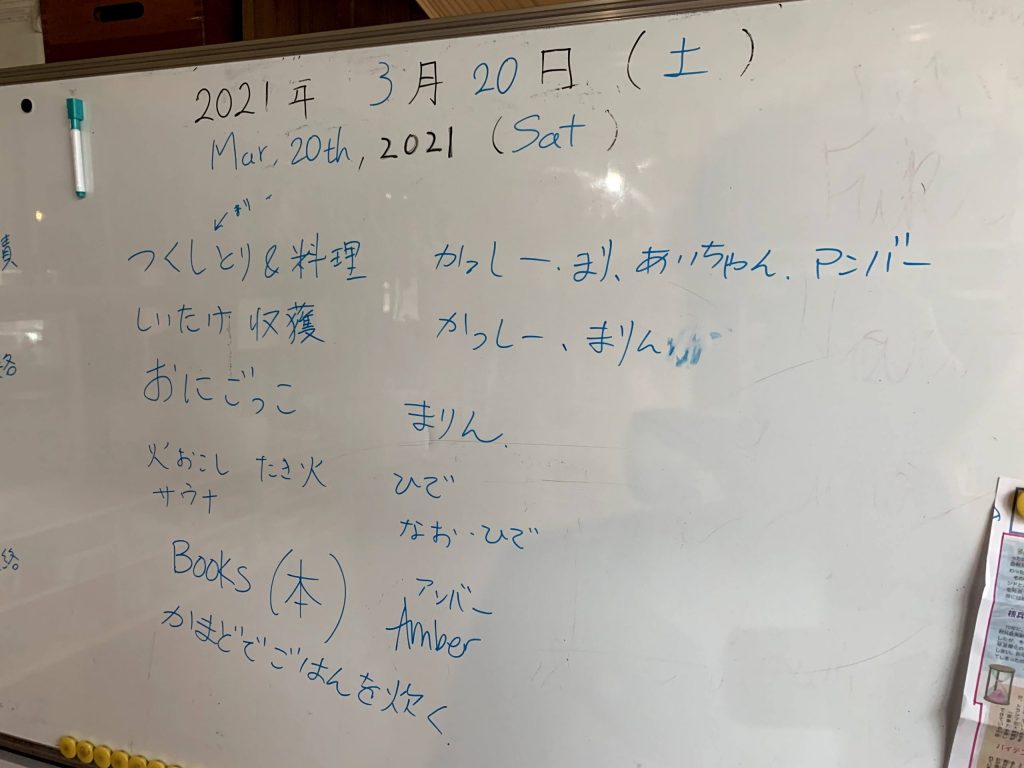 2021年 3月 20日 (土)
Mar, 20th, 2021 (Sat)
つくしとり&料理 かっしー、まり、あいちゃん、アンバー
しいたけ 収穫 かっしー、まりん
おにごっこ まりん
火おこし たき火 ひで
サウナ なお・ひで
Books (本) アンバー
Amber
かまどでごはんを炊く